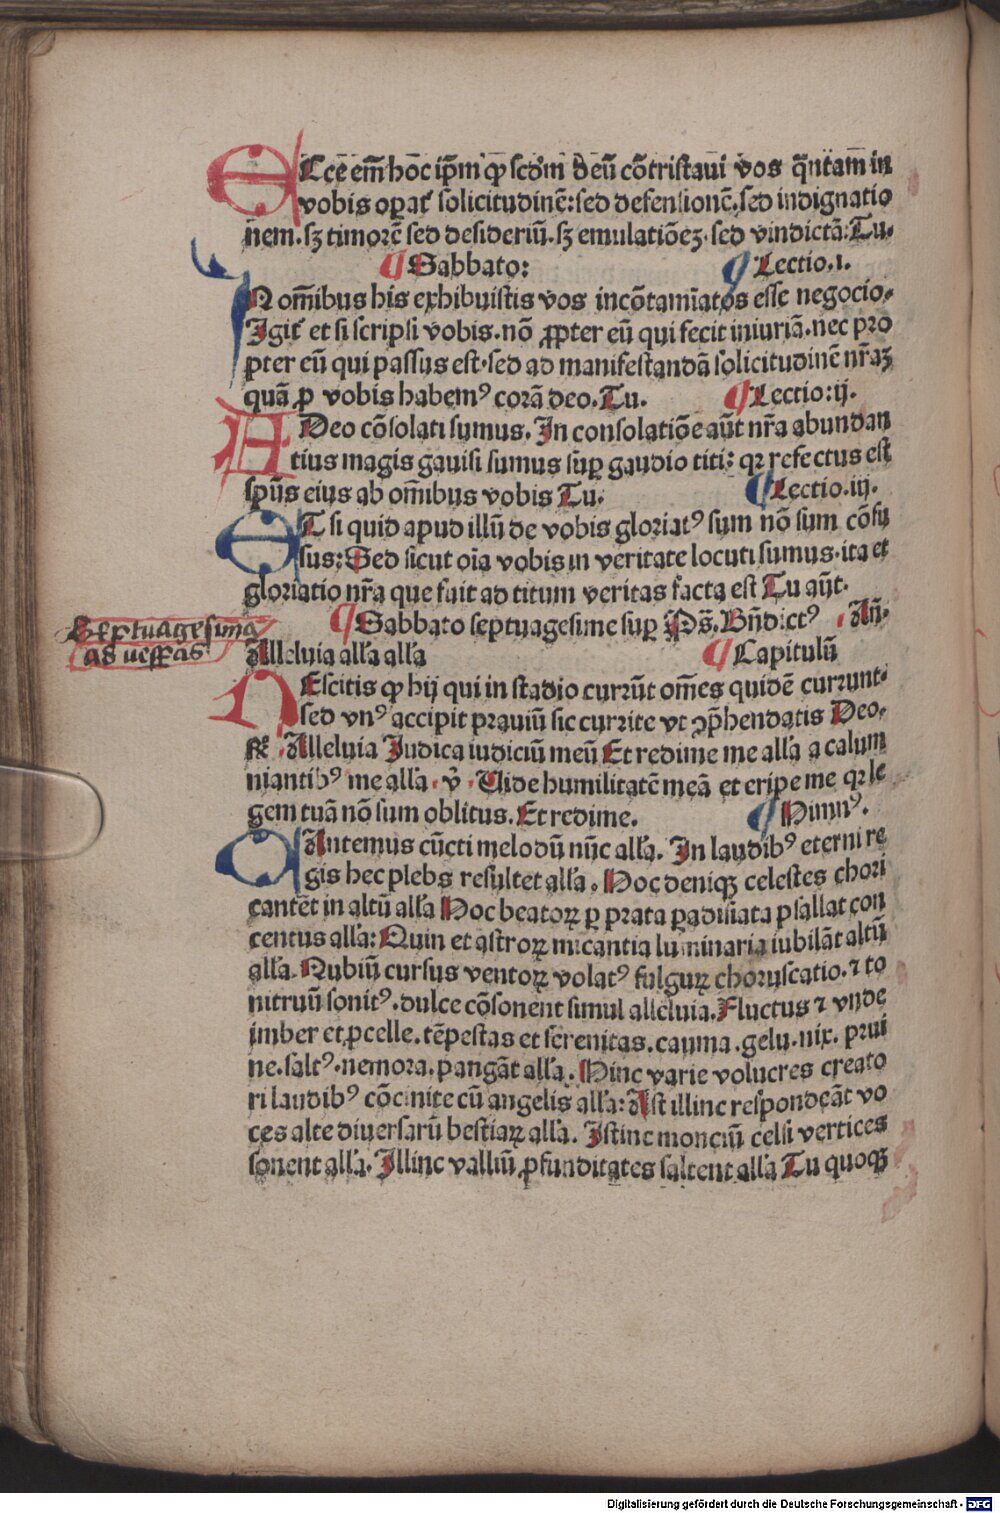 ECce em̄ hoc ip̄m ꝙ scd̄m deū cōtristaui vos q̄ntam in
vobis oꝑat᷑ solicitudinē: sed defensionē. sed indignatio
nem. sꝫ timorē sed desideriū. sꝫ emulatiōeꝫ. sed vindictā. Tu.
¶ Sabbato: ¶ Lectio.i.
IN om̄ibus his exhibuistis vos incōtamīatos esse negocio.
Igit᷑ et si scripsi vobis. nō ꝓpter eū qui fecit iniuriā. nec pro
pter eū qui passus est. sed ad manifestandā solicitudinē nr̄aꝫ
quā ꝓ vobis habemꝰ corā deo. Tu. ¶ Lectio: ij.
ADeo cōsolati sumus. In consolatiōe aūt nr̄a abundan
tius magis gauisi sumus suꝑ gaudio titi: qꝛ refectus est
spūs eius ab om̄ibus vobis Tu. ¶ Lectio. iij.
ET si quid apud illū de vobis gloriatꝰ sum nō sum cōfu
sus: Sed sicut oīa vobis in veritate locuti sumus. ita et
gloriatio nr̄a que fuit ad titum veritas facta est Tu aūt.
Septuagesima
ad vesperas
¶ Sabbato septuagesime suꝑ Ps̄. Bn̄dictꝰ . Añ.
Alleluia alľa alľa ¶ Capitulū
NEscitis ꝙ hij qui in stadio currūt om̄es quidē currunt.
sed vnꝰ accipit prauiū sic currite vt ꝯp̄hendatis Deo.
℟ . Alleluia Iudica iudiciū meū Et redime me alľa a calum
niantibꝰ me alľa . v̄ . Uide humilitatē meā et eripe me qꝛ le
gem tuā nō sum oblitus. Et redime. ¶ Himnꝰ.
CAntemus cūcti melodū nūc alľa. In laudibꝰ eterni re
gis hec plebs resultet alľa. Hoc deniqꝫ celestes chori
cantēt in altū alľa Hoc beatoꝝ ꝑ prata ꝑadisiata psallat con
centus alľa: Quin et astroꝝ micantia luminaria iubilāt altū
alľa. Nubiū cursus ventoꝝ volatꝰ fulguꝝ choruscatio. ⁊ to
nitruū sonitꝰ. dulce cōsonent simul alleluia. Fluctus ⁊ vnde
imber et ꝓcelle. tēpestas et serenitas. cauma. gelu. nix. prui
ne. saltꝰ. nemora. pangāt alľa. Hinc varie volucres creato
ri laudibꝰ cōcinite cū angelis alľa: Ast illinc respondeāt vo
ces alte diuersarū bestiaꝝ alľa. Istinc monciū celsi vertices
sonent alľa. Illinc valliū ꝓfunditates saltent alľa Tu quoqꝫ
Digitalisierung gefördert durch die Deutsche Forschungsgemeinschaft - DFG